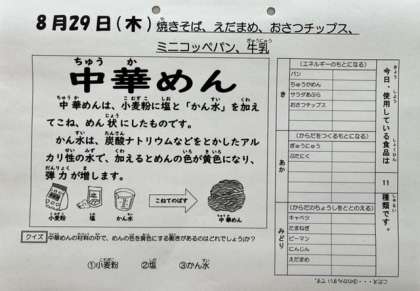 8月29日(木)焼きそば、えだまめ、おさつチップス、
ミニコッペパン、牛乳
ぎゅうにゅう
ちゅう か
中華めん
中華めんは、小麦粉に塩と「かん水」を加え
てこね、めん状にしたものです。
かん水は、炭酸ナトリウムなどをとかしたアル
カリ性の水で、加えるとめんの色が黄色になり、
弾力が増します。
小麦粉
塩
かん水
こねてのばす
中華めん
クイズ 中華めんの材料の中で、めんの色を黄色にする働きがあるのはどれでしょうか?
①小麦粉 ②塩 ③かん水
今日、使用している食品は 11 種類です。
き
(エネルギーのもとになる)
パン
ちゅうかめん
サラダあぶら
おさつチップス
あか
(からだをつくるもとになる)
ぎゅうにゅう
ぶたにく
みどり
(からだのちょうしをととのえる)
キャベツ
たまねぎ
ピーマン
にんじん
えだまめ